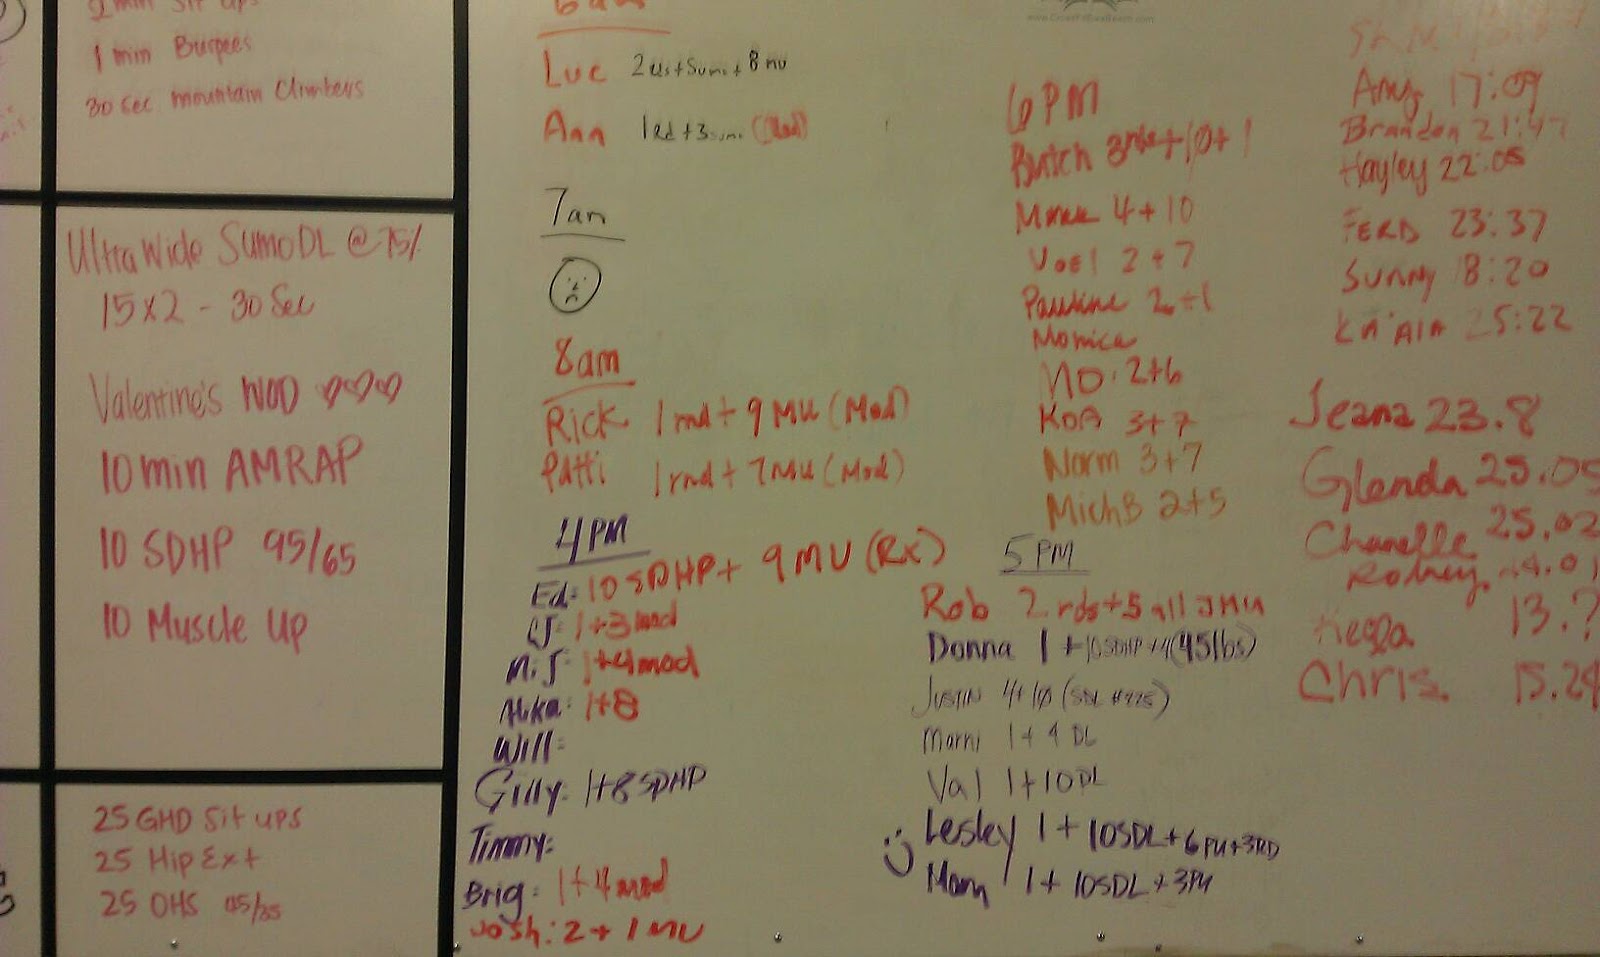 2 min Sit ups
1 min Burpees
30 sec mountain Climbers
Ultra Wide SumoDL @ 75%
15x2 - 30 Sec
Valentine's WOD
10 min AMRAP
10 SDHP 95/65
10 Muscle Up
25 GHD Sit ups
25 Hip Ext
25 OHS 95/65
6am
Luc
Ann 1Rd + 3 (Mod)
7am
8am
Rick 1 rnd + 9 MU (Mod)
Patti 1 rnd + 7 MU (Mod)
4PM
Ed: 10 SDHP + 9 MU (Rx)
CJ: 1+3 mod
M.J: 1+4 mod
1+8
Will:
Gilly: 1+8 SDHP
Timmy:
Brig: 1+4 mod
Josh: 2 + 1 MU
www.CrossFitEwaBeach.com
6PM
Butch 3rds+10+1
4+10
2+7
Pauline 2+1
Monica
MD. 2+6
KOA 3+7
Norm 3+7
MichB 2+5
5PM
Rob 2 rds+5 all JMU
Donna 1 + 10SDHP+4 (45lbs)
Justin 4+10
Marni 1+4 DL
Val 1+10DL
Lesley 1 + 10SDL+6PU+3RD
Mary 1+ 10SDL+3PU
Amy 17:09
Brandon 21:47
Hayley 22:05
FERD 23:37
Sunny 18:20
25:22
Jeana 23.8
Glenda 25.05
Chanelle 25.02
Rodney
13.?
Chris 15.24